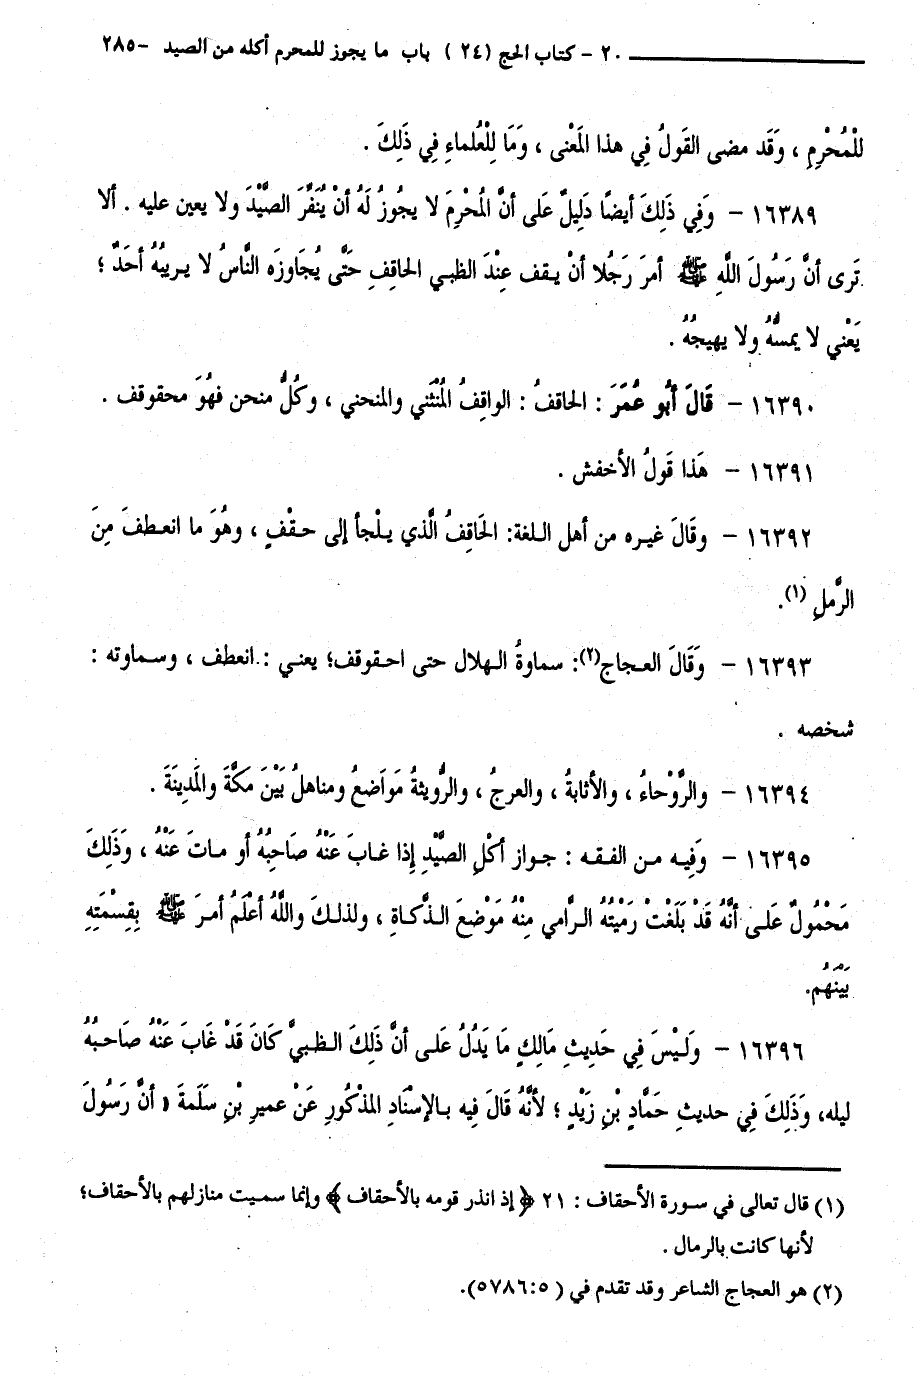 ٢٠ - كتاب الحج (٢٤) باب ما يجوز للمحرم أكله من الصيد -٢٨٥
لِلْمُحْرِمِ ، وَقَد مضى القَولُ فِي هذا المَعْنى ، وَمَا لِلْعُلماءِ فِي ذَلِكَ .
١٦٣٨٩ - وَفِي ذَلِكَ أيضًا دَلِيلٌ عَلى أنَّ المُحْرِمَ لا يجوزُ لَهُ أنْ يُنَفِّرَ الصَّيْدَ ولا يعين عليه . ألا
تَرى أنَّ رَسُولَ اللَّهِ ﷺ أمرَ رَجُلا أنْ يـقف عِنْدَ الظبي الحاقِفِ حَتَّى يُجَاوزَه النَّاسُ لا يـريبُهُ أحَدٌ ؛
يَعْني لا يمسُّهُ ولا يهيجُهُ .
١٦٣٩٠ - قَالَ أبُو عُمَرَ : الحاقفُ : الواقِفُ المُنْثَني والمنحني ، وكُلُّ منحن فهُوَ محقوقف .
١٦٣٩١ - هَذا قَولُ الأخفش .
١٦٣٩٢ - وقَالَ غيـره من أهل الـلغة: الحَاقِفُ الَّذي يـلْجأ إلى حـقْفٍ ، وهُوَ ما انعـطفَ مِنَ
الرَّملِ (١).
١٦٣٩٣ - وَقَالَ العـجاج(٢): سماوةُ الـهلال حتى احـقوقف؛ يعنـي : انعطف ، وسـماوته :
شخصه .
١٦٣٩٤ - والرَّوْحاءُ ، والأثابةُ ، والعرجُ ، والرُّويثةُ مَوَاضعُ ومناهلُ بَيْنَ مَكَّةَ والمَدِينَةَ .
١٦٣٩٥ - وَفِيه مـن الفـقـه : جـواز أكْلِ الصَّيْدِ إِذا غـابَ عَنْهُ صَاحِبُهُ أو مـاتَ عَنْهُ ، وَذَلِكَ
مَحْمُولٌ عَلـى أنَّهُ قَدْ بَلَغَتْ رَمْيَتُهُ الـرَّامي مِنْهُ مَوْضعَ الـذَّكـاةِ ، ولذلـكَ واللَّهُ أعْلَمُ أمـرَ ﷺ بِقِسْمَتِهِ
بَيْنَهُم.
١٦٣٩٦ - وَلَـيْسَ فِي حَدِيثِ مَالِكٍ مَا يَدُلُّ عَلـى أنَّ ذَلِكَ الـظـبيَّ كَانَ قَدْ غَابَ عَنْهُ صَاحـبُهُ
ليله، وَذَلِكَ فِي حديثِ حَمَّادِ بْنِ زَيْدٍ ؛ لأنَّهُ قَالَ فِيه بـالإسْنَادِ المَذْكُورِ عَنْ عميرِ بْنِ سَلَمةَ « أنَّ رَسُولَ
(١) قال تعالى في سـورة الأحقاف : ٢١ ﴿ إذ انذر قومه بالأحقاف ﴾ وإنما سمـيت منازلهم بالأحقاف؛
لأنها كانت بالرمال .
(٢) هو العجاج الشاعر وقد تقدم في ( ٥ : ٥٧٨٦).